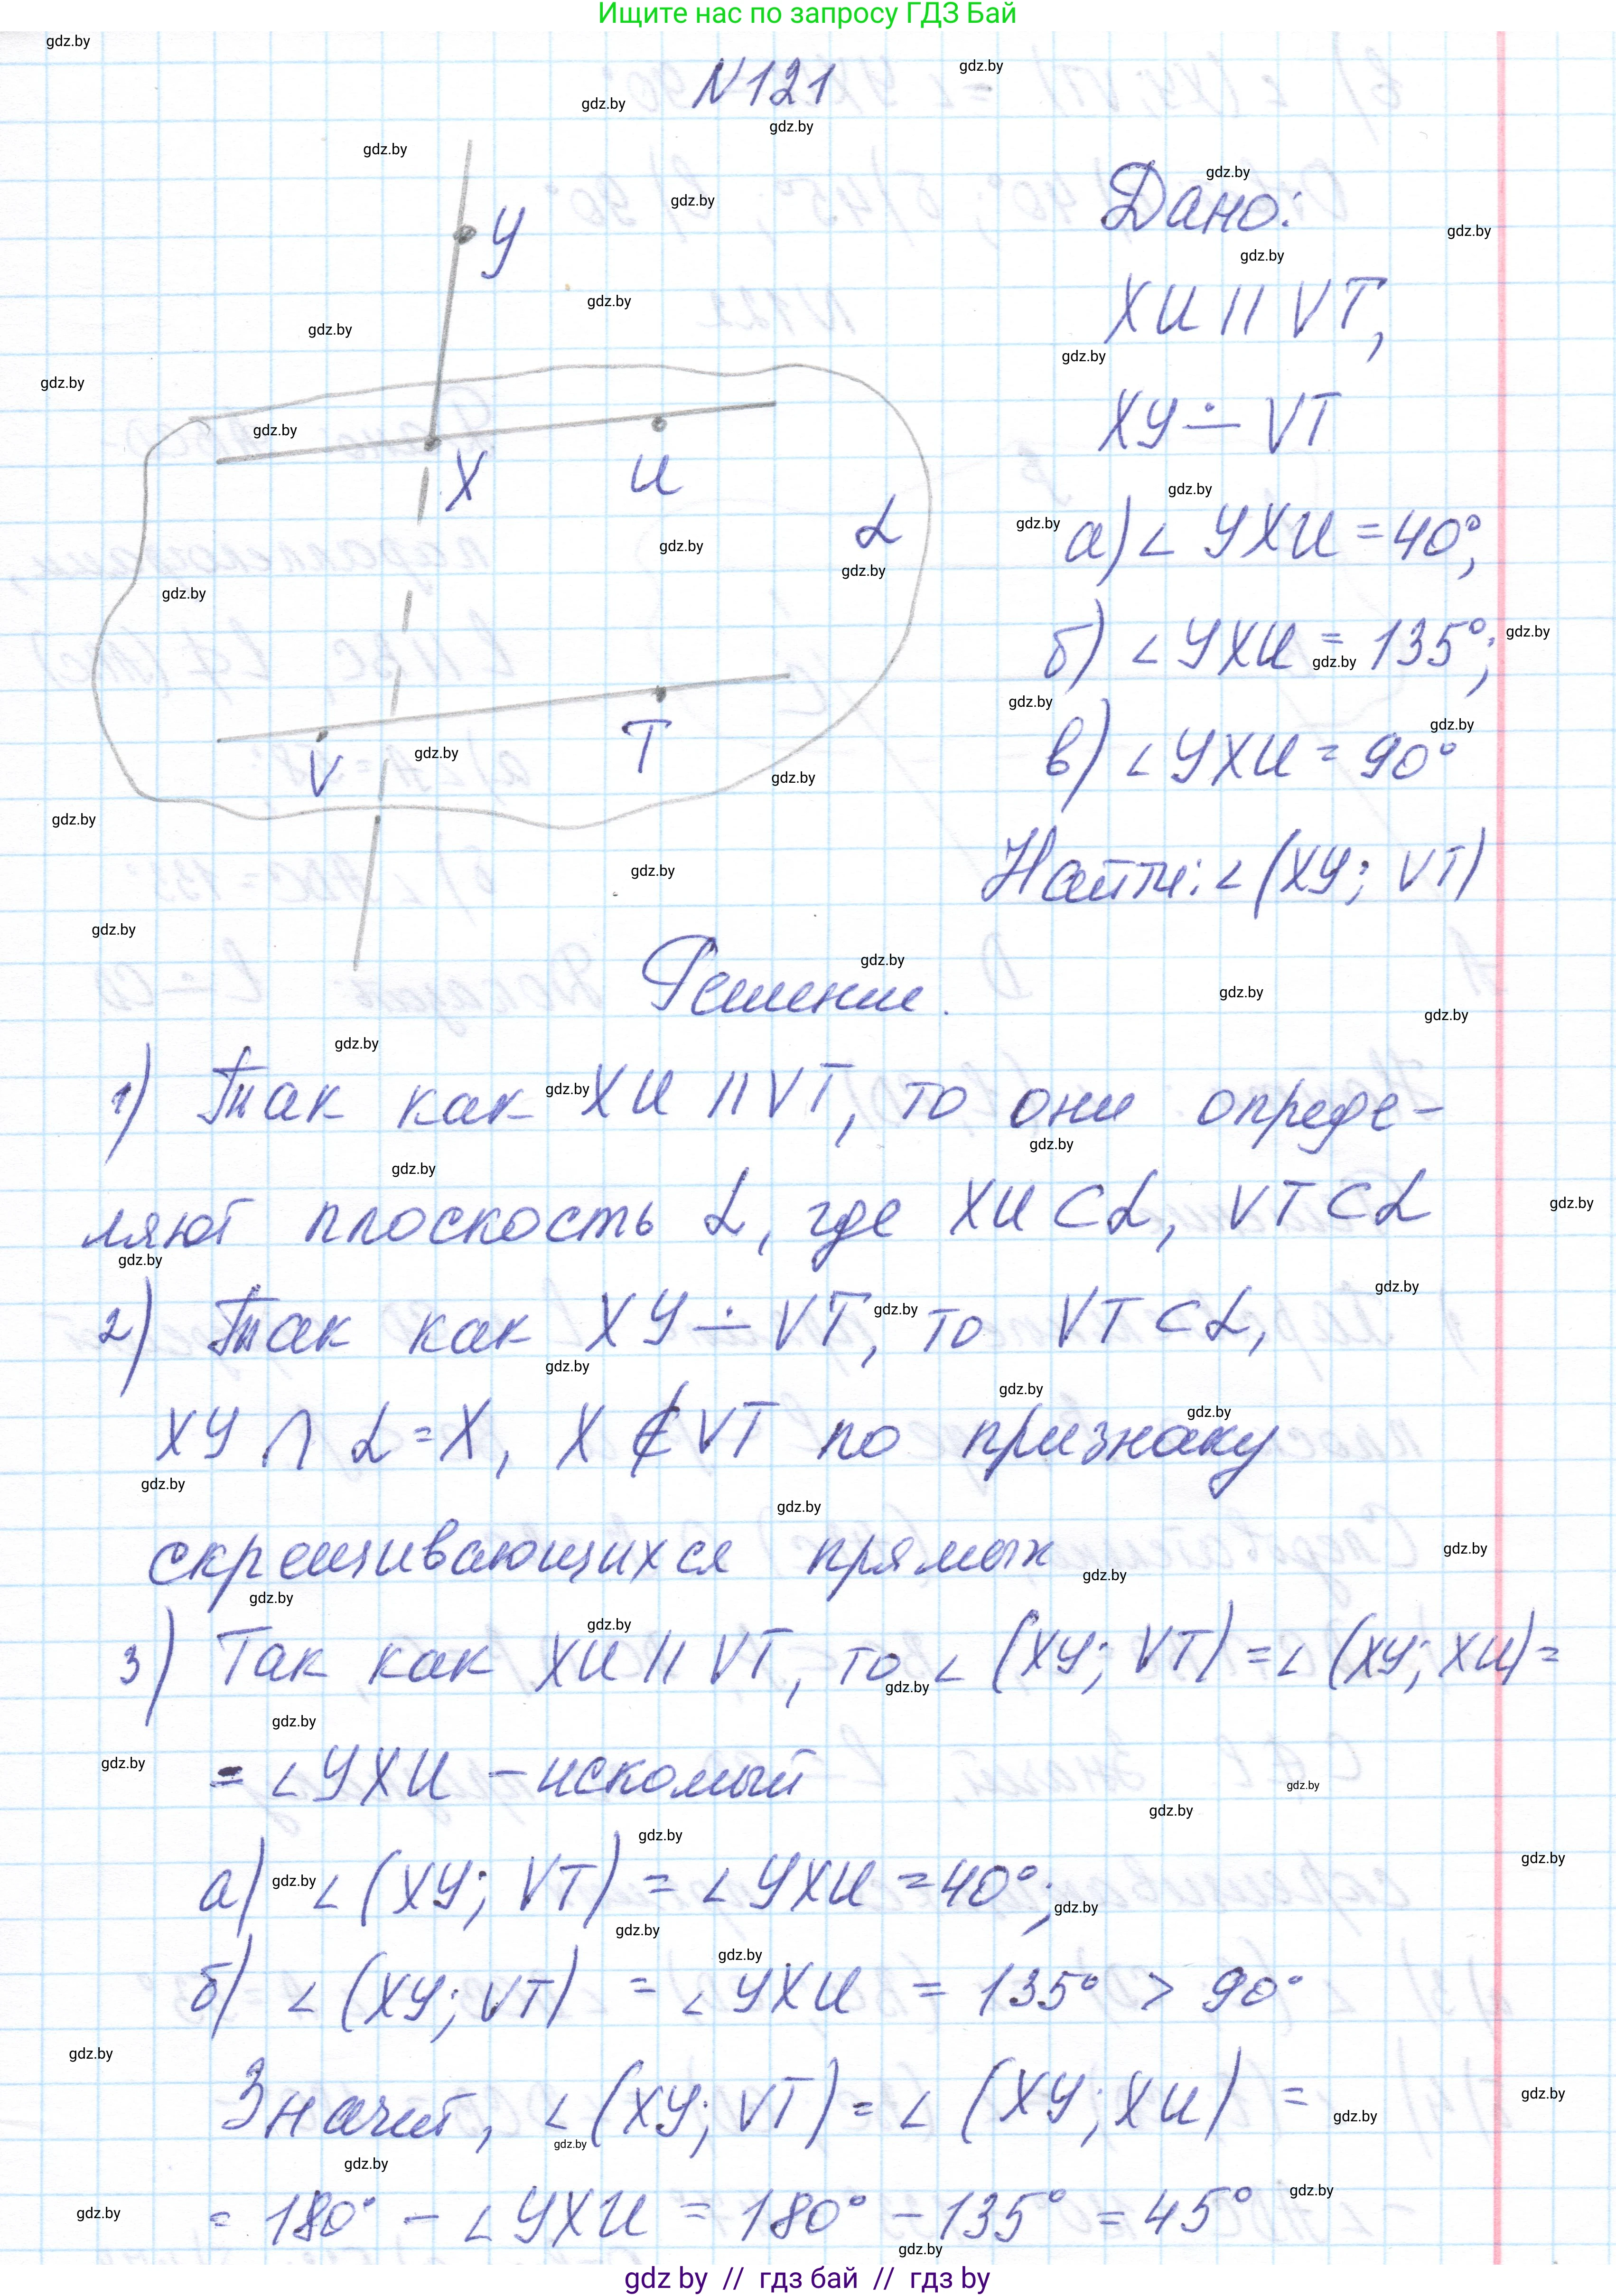 Ищите нас по запросу ГДЗ Бай
N121
Дано:
XU || VT,
XY ∸ VT
а) ∠ YXU = 40°,
б) ∠ YXU = 135°;
в) ∠ YXU = 90°
Найти: ∠ (XY; VT)
Y
X
U
α
V
T
Решение.
1) Так как XU || VT, то они опреде-
ляют плоскость α, где XU ⊂ α, VT ⊂ α
2) Так как XY ∸ VT, то VT ⊂ α,
XY ∩ α = X, X ∉ VT по признаку
скрещивающихся прямых
3) Так как XU || VT, то ∠ (XY; VT) = ∠ (XY; XU) =
= ∠ YXU – искомый
а) ∠ (XY; VT) = ∠ YXU = 40°;
б) ∠ (XY; VT) = ∠ YXU = 135° > 90°
Значит, ∠ (XY; VT) = ∠ (XY; XU) =
= 180° – ∠ YXU = 180° – 135° = 45°
gdz by // гдз бай // гдз by